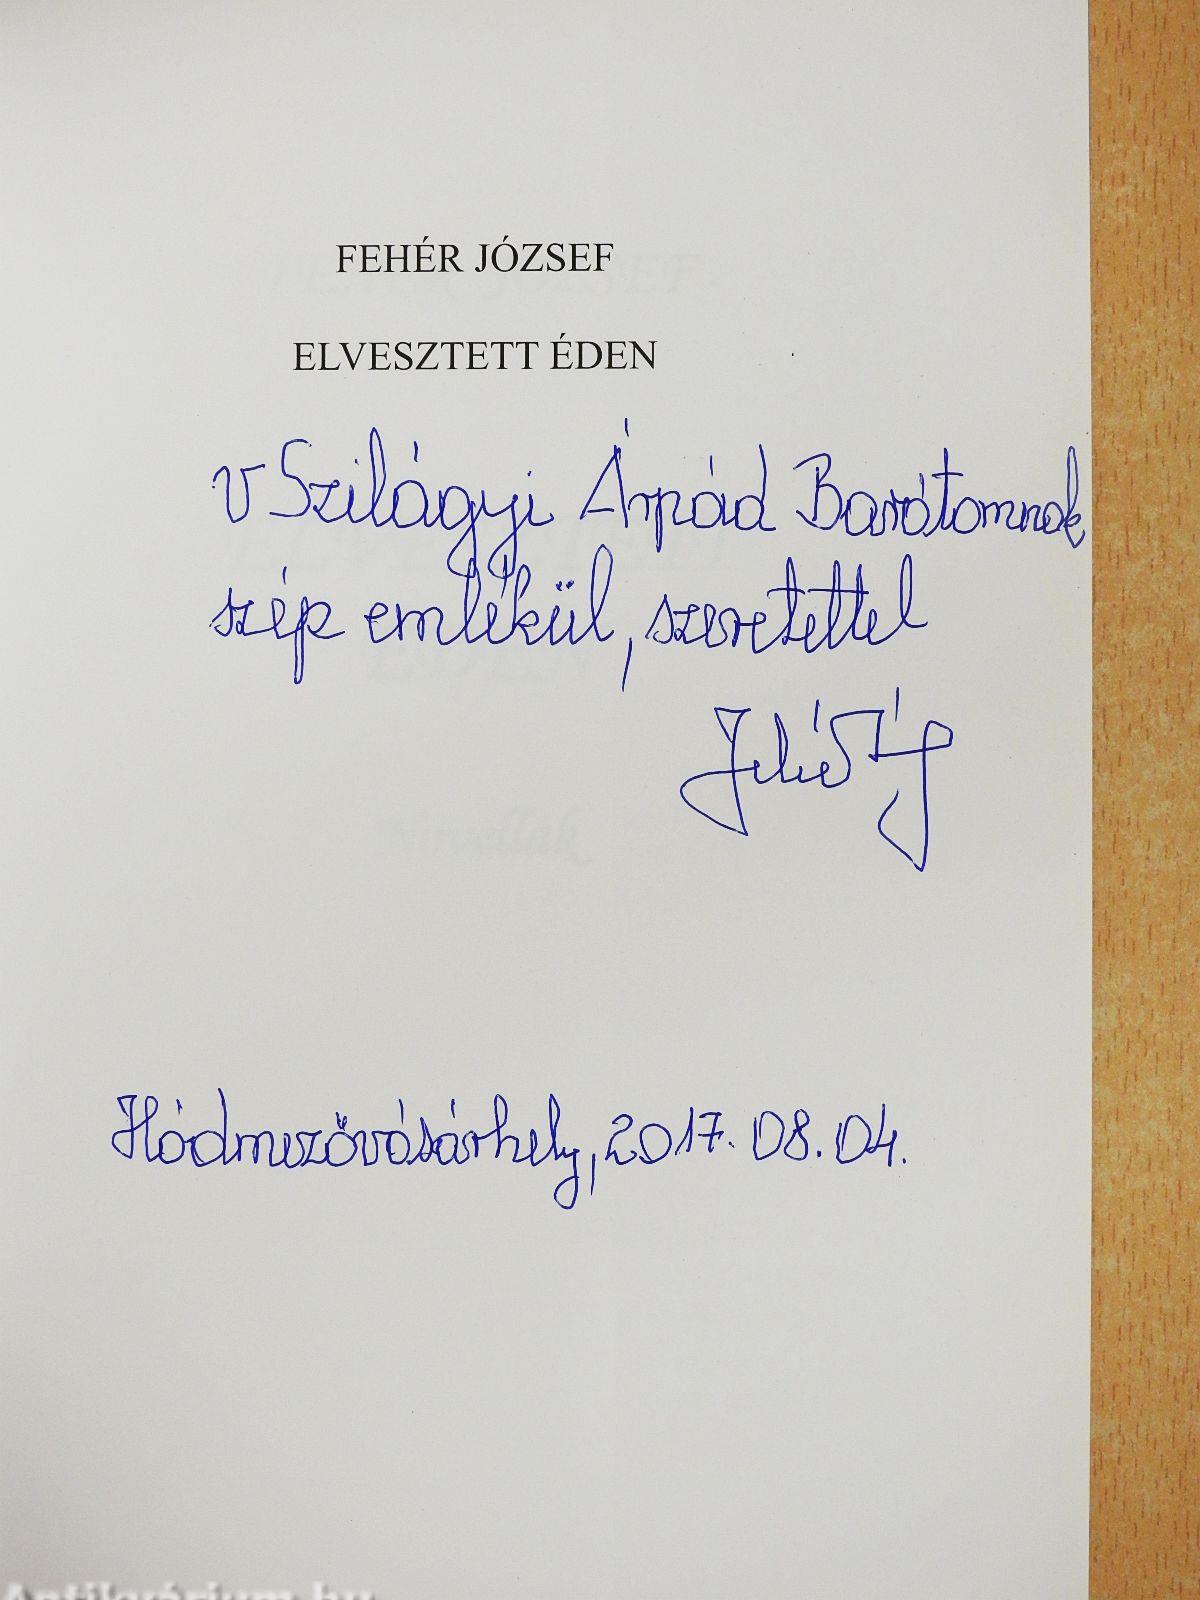 FEHÉR JÓZSEF
ELVESZTETT ÉDEN
V Szilágyi Árpád Barátomnak
szép emlékül, szeretettel
Hódmezővásárhely, 2017. 08. 04.
Antikvárium.hu